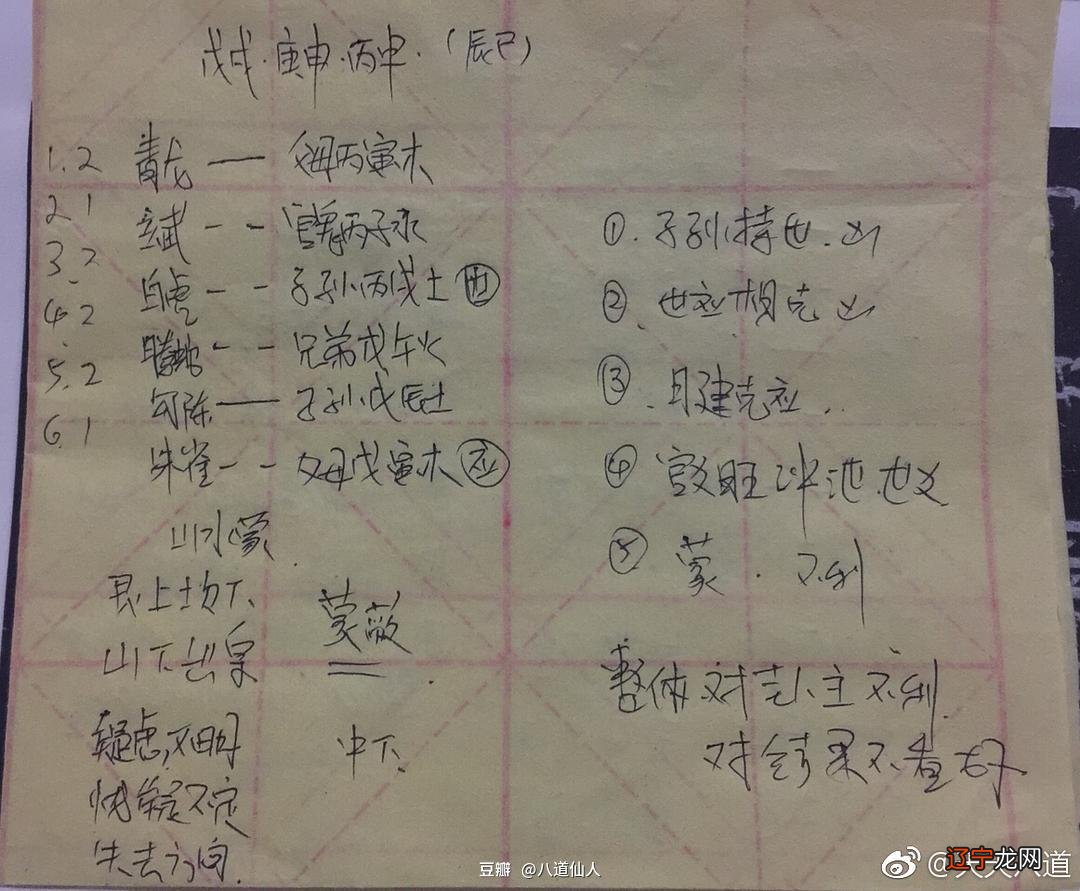 戊戌·庚申·丙申·(辰巳)
1.2 青龙 — 父母丙寅木
2.1 玄武 - - 官鬼丙子水
3.2 白虎 - - 子孙丙戌土 世
4.2 螣蛇 - - 兄弟戊午火
5.2 勾陈 — 子孙戊辰土
6.1 朱雀 - - 父母戊寅木 应
山水蒙
艮上坎下
山下出泉
疑虑,不明
犹疑不定
失去方向
蒙蔽
中下
①.子孙持世.凶
②.世应相克 凶
③.月建克应..
④
⑤ 蒙.不利
整体对卦主不利
对结果不看好
豆瓣 @八道仙人
辽宁龙网
八道